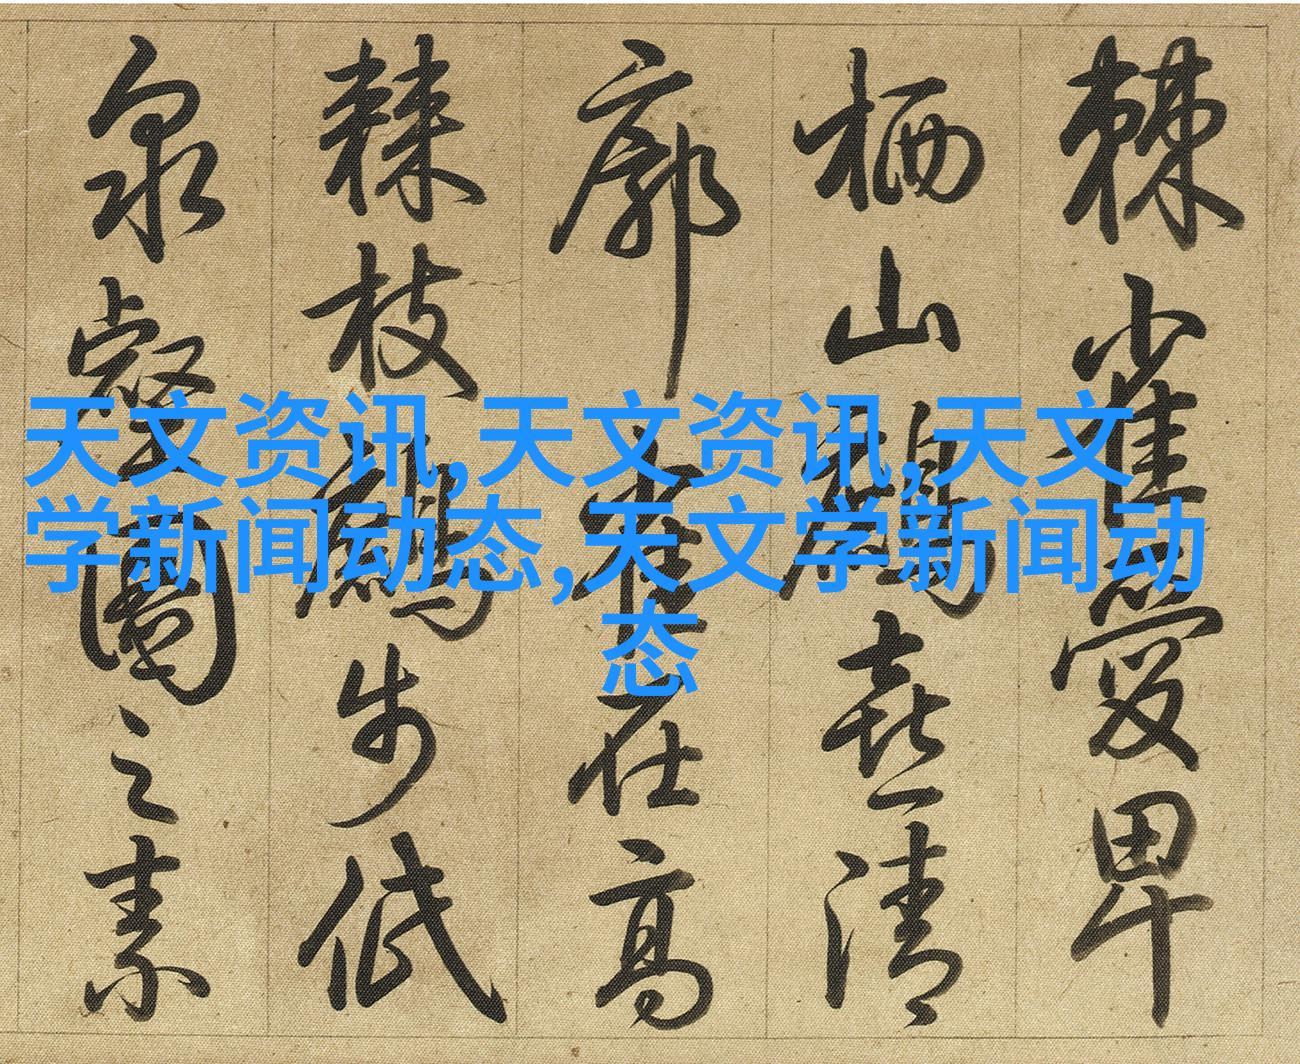 天文资讯,天文资讯,天文
学新闻动态,天文学新闻动
态
棘雀愛卑
栖山喜清
廓雀在高
棘枝步低
泉圖之素